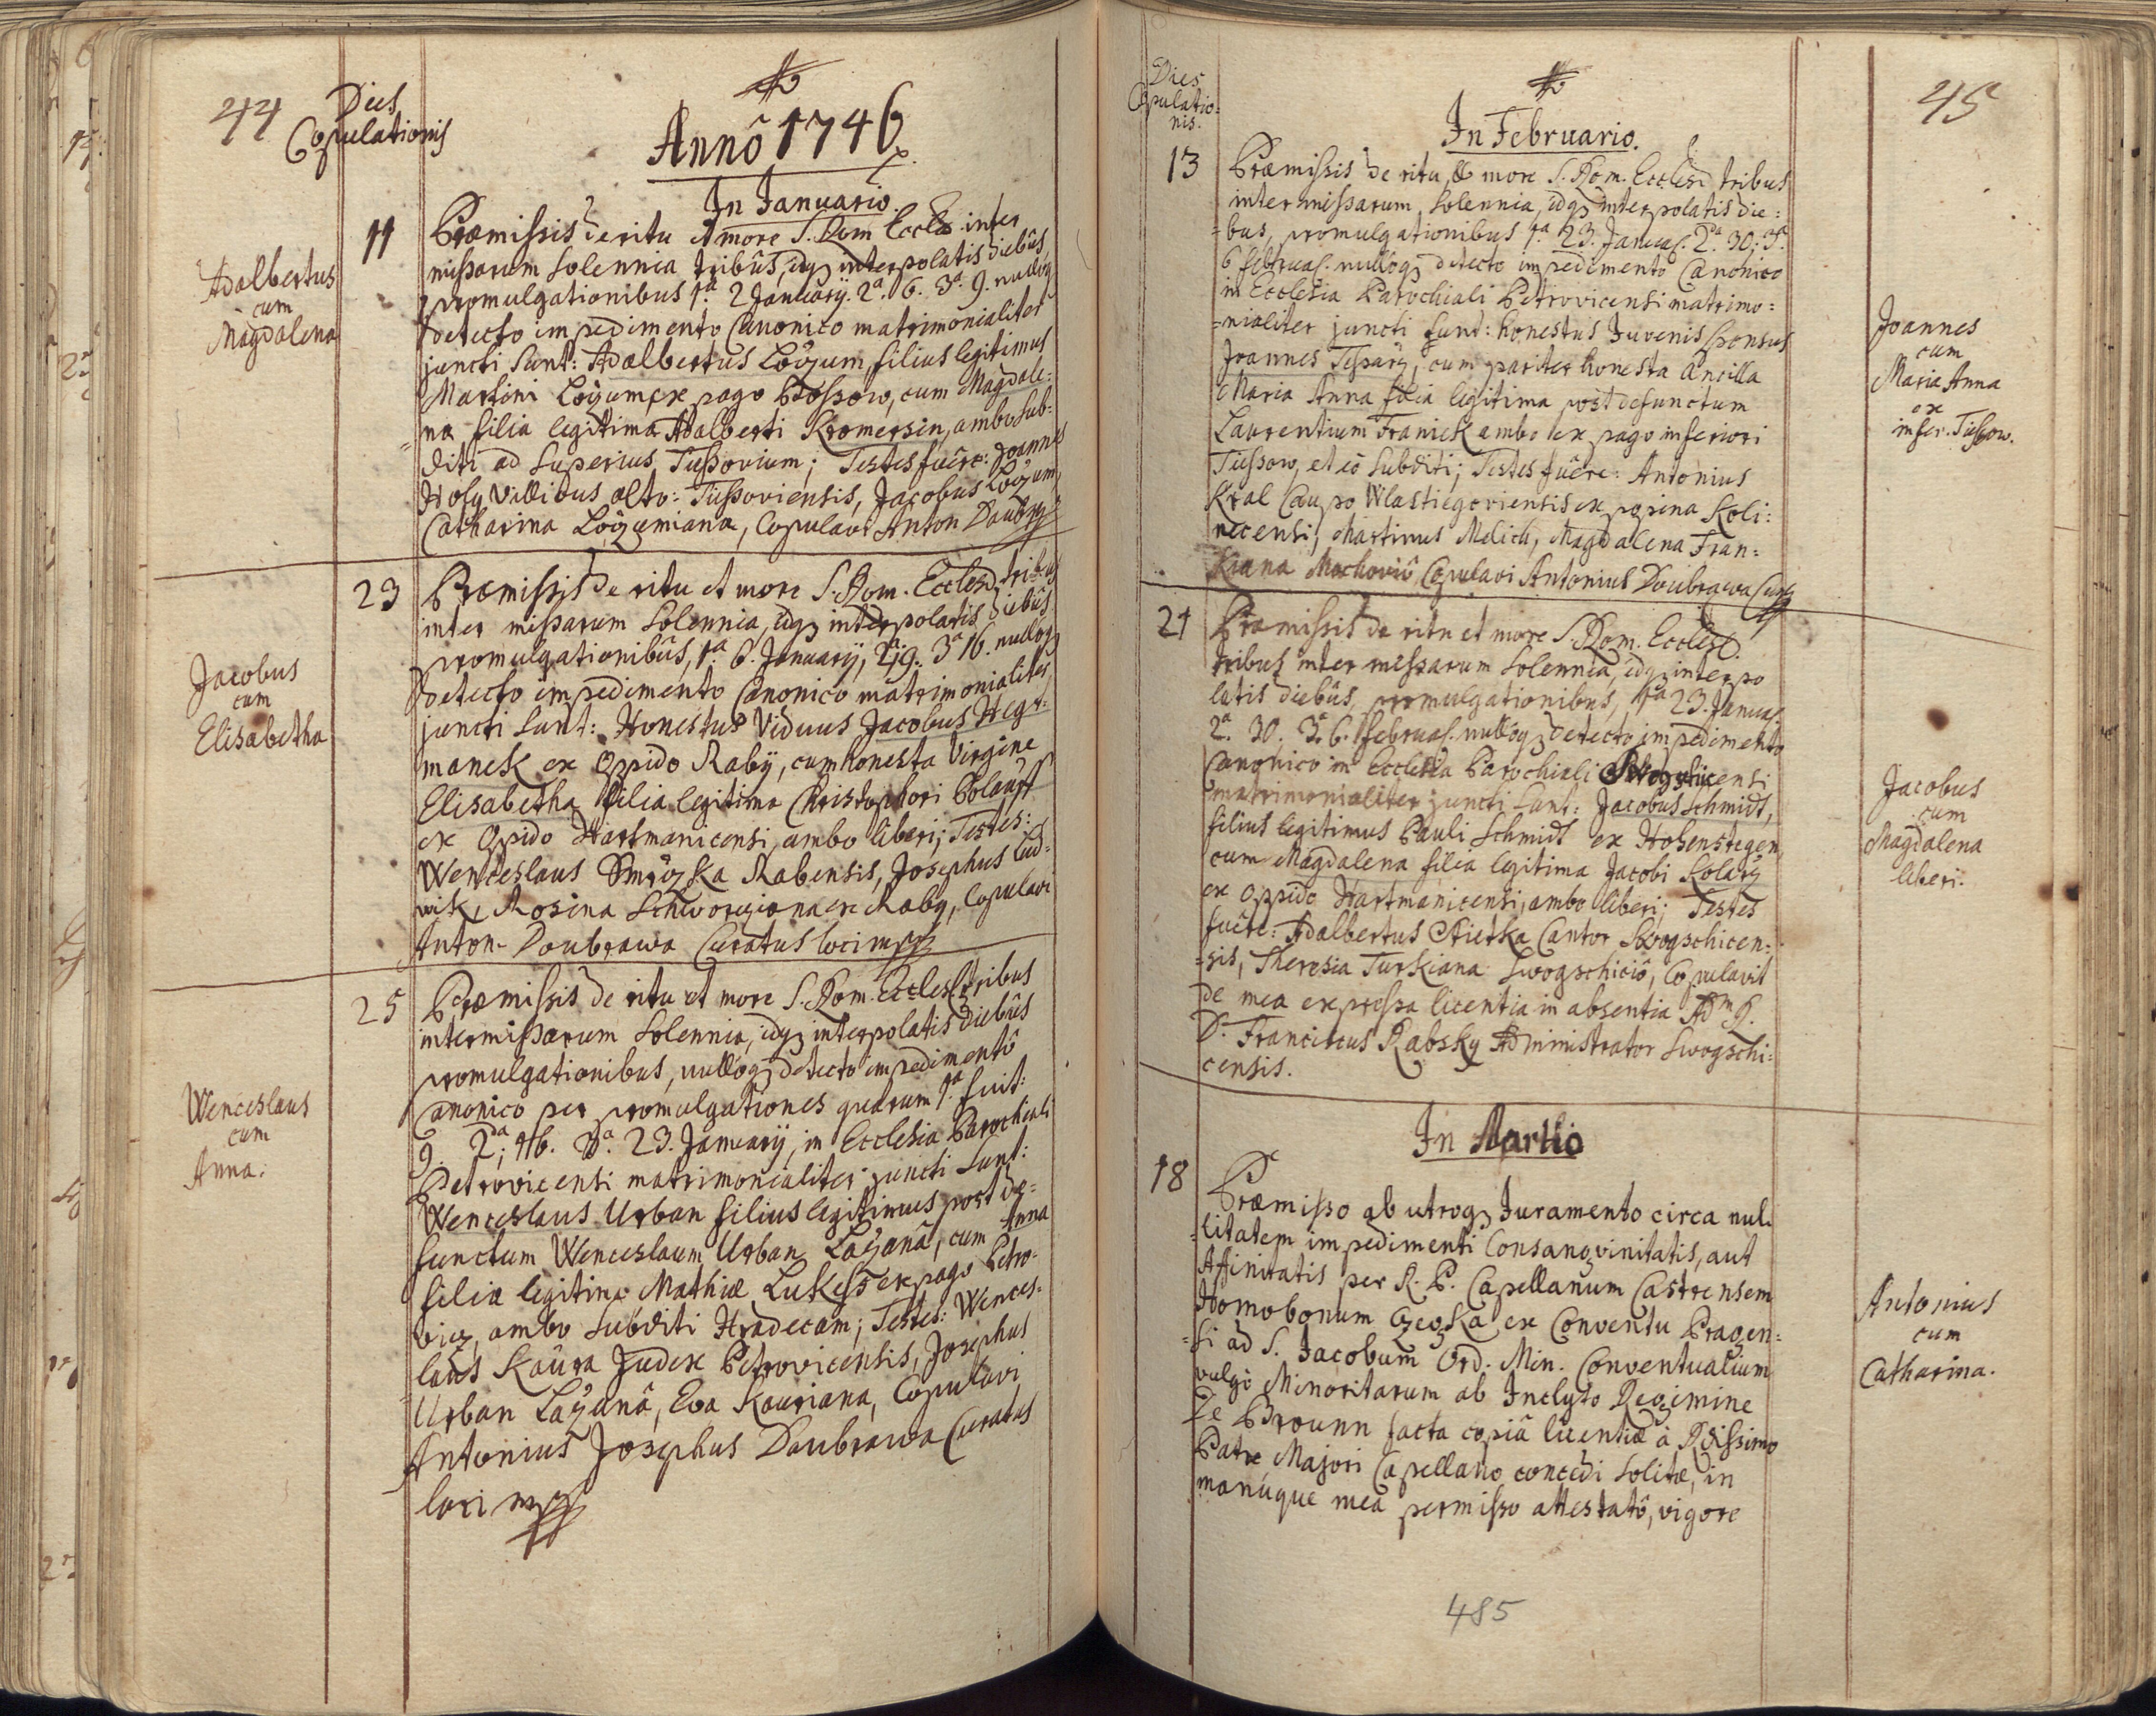 44
Dies
Copulationis
Annô 1746
In Januario.
Adalbertus
cum
Magdalena
11
Præmissis de ritu et more S. Rom Eccle inter
missarum Solennia tribûs, idq interpolatis diebûs
promulgationibus 1.a 2 January. 2.a 6. 3.a 9. nullóq
detecto impedimento Canonico matrimonialiter
juncti sunt: Adalbertus Loÿum, filius legitimus
Martini Loÿum ex pago, cum Magdale:
na filia legitima Adalberti Kromersin, ambo sub:
diti ad superius Tiessovium; Testes fuêre: Joannes
Holy Villicus alto: Tiessoviensis, Jacobus Loÿum
Catharina Loÿumiana, Copulavi Anton Doubra
Jacobus
cum
Elisabetha
23
Præmissis de ritu et more S. Rom. Eccles tribus
inter missarum Solennia, idq interpolatis diebûs
promulgationibûs, 1.a 6. January, 2.a 9. 3.a 16. nullóq
detecto impedimento Canonico matrimonialiter
juncti sunt: Honestus Viduus Jacobus Hegr:
manek ex Oppido Raby, cum honesta Virgine
Elisabetha filia legitima Christophori
ex Oppido Hartmanicensi, ambo liberi; Testes:
Wenceslaus Smrözka Rabensis, Josephus Lud:
wik, Rosina ex Raby, Copulavi
Anton- Doubrawa Curatus loci mpp
Wenceslaus
cum
Anna.
25
Præmissis de ritu et more S. Rom. Eccles tribus
inter missarum Solennia, idq interpolatis diebûs
promulgationibus, nullóq detecto impedimentô
Canonico per promulgationes quarum 1.a fuit:
9. 2.a; 16. 3.a 23. January, in Ecclesia Parochiali
Petrovicensi matrimonialiter juncti sunt:
Wenceslaus Urban filius legitimus post de:
functum Wenceslaum Urban Laÿanâ, cum Anna
filia legitima Mathiæ Lukess ex pago Petro:
vicz, ambo subditi Hradecam; Testes: Wences:
laus Kaûra Judex Petrovicensis, Josephus
Urban Laÿanâ, Eva Kauriana, Copulavi
Antonius Josephus Doubrawa Curatus
loci mpp
45
Dies
Copulatio:
nis.
In Februario.
13
Præmissis de ritu, & more S. Rom. Eccles tribus
inter missarum Solennia, idq interpolatis die:
bus, promulgationibus 1.a 23. Januar. 2.da 30. 3.a
6 februar. nullóq detecto impedimento Canonico
in Ecclesia Parochiali Petrovicensi matrimo:
nialiter juncti sunt: honestus Juvenis sponsus
Joannes Tessarz, cum pariter honesta Ancilla
Maria Anna filia legitima post defunctum
Laurentium Franiek ambo ex pago inferiori
Tiessow, et eô subditi; Testes fuêre: Antonius
Kral Caupo Wlastiegoviensis ex popina Koli:
necensi, Martinus Melich, Magdalena Fran:
Kiana Mochoviô, Copulavi Antonius Doubrawa Cur
Joannes
cum
Maria Anna
ex
infer. Tiessow.
21
Præmissis de ritu et more S. Rom. Eccles.
tribus inter missarum Solennia, idq interpo
latis diebûs, promulgationibus, 1.a 23. Januar.
2.a 30. 3.a 6. februar. nullóq detecto impedimento
Canonico in Ecclesia Parochiali
matrimonialiter juncti sunt: Jacobus Schmidt,
filius legitimus Pauli Schmidt ex Hohenstegen
cum Magdalena filia legitima Jacobi Kolarz
ex Oppido Hartmanicensi, ambo liberi; Testes
fuêre: Adalbertus Cantor Swogschicen:
sis, Theresia Turkiana Swogschiciô, Copulavit
de mea expressa licentia in absentia Adm R.
D. Franciscus Rabsky Administrator Swogschi:
censis.
Jacobus
cum
Magdalena
liberi.
In Martio
18
Præmisso ab utroq Juramento circa nul:
litatem impedimenti Consangvinitatis, aut
Affinitatis per R. P. Capellanum Castrensem
Homobonum Czeczka ex Conventu Pragen:
si ad S. Jacobum Ord. Min. Conventualium
vulgô Minoritarum ab Inclyto Regimine
De Brounn facta copiâ licentiæ à Rdissimo
Patre Majori Capellano concedi solitæ, in
manúque mea permisso attestatô, vigore
Antonius
cum
Catharina.
485